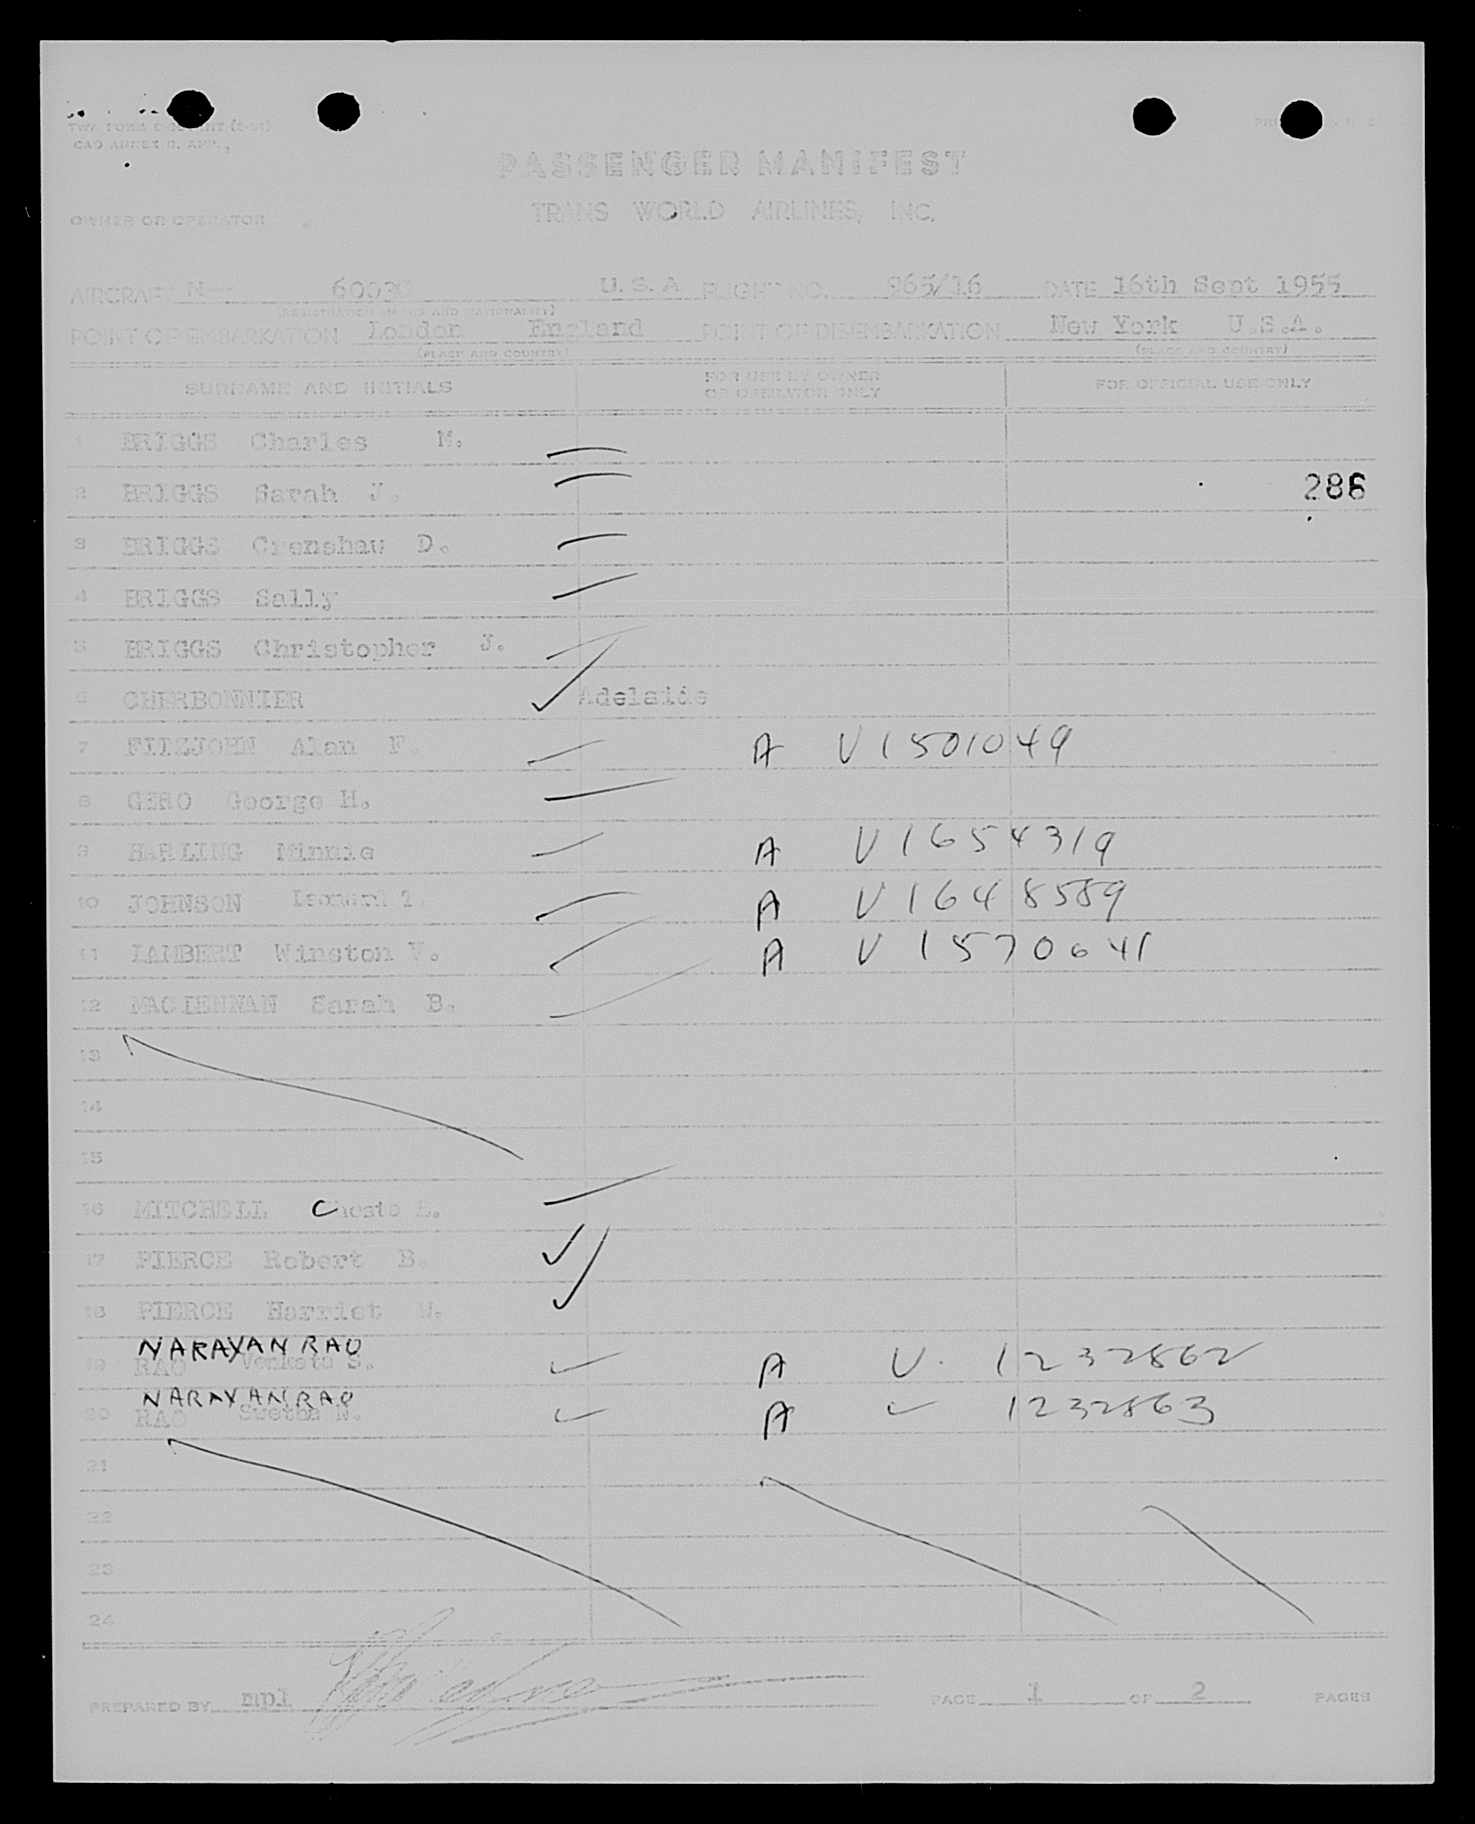 PASSENGER MANIFEST
OWNER OR OPERATOR TRANS WORLD AIRLINES, INC.
AIRCRAFT N U.S.A FLIGHT NO. 965/16 DATE 16th Sept 1955
(REGISTRATION MARKS AND NATIONALITY)
POINT OF EMBARKATION London England POINT OF DISEMBARKATION New York U.S.A.
(PLACE AND COUNTRY) (PLACE AND COUNTRY)
SURNAME AND INITIALS FOR USE BY OWNER OR OPERATOR ONLY FOR OFFICIAL USE ONLY
1 BRIGGS Charles M.
2 BRIGGS Sarah J. 286
3 BRIGGS Crenshaw D.
4 BRIGGS Sally
5 BRIGGS Christopher J.
6 CHERBONNIER Adelaide
7 FITZJOHN Alan F. A V1501049
8 GERO George H.
9 HARLING Minnie A V1654319
10 JOHNSON A V1648589
11 LAMBERT Winston V. A V1570641
12 MACLENNAN Sarah B.
13
14
15
16 MITCHELL
17 PIERCE Robert B.
18 PIERCE Harriet W.
NARAYAN RAO
19 RAO Venkata S. A V. 1232862
NARAYAN RAO
20 RAO N. A V 1232863
21
22
23
24
PREPARED BY mpl PAGE 1 OF 2 PAGES